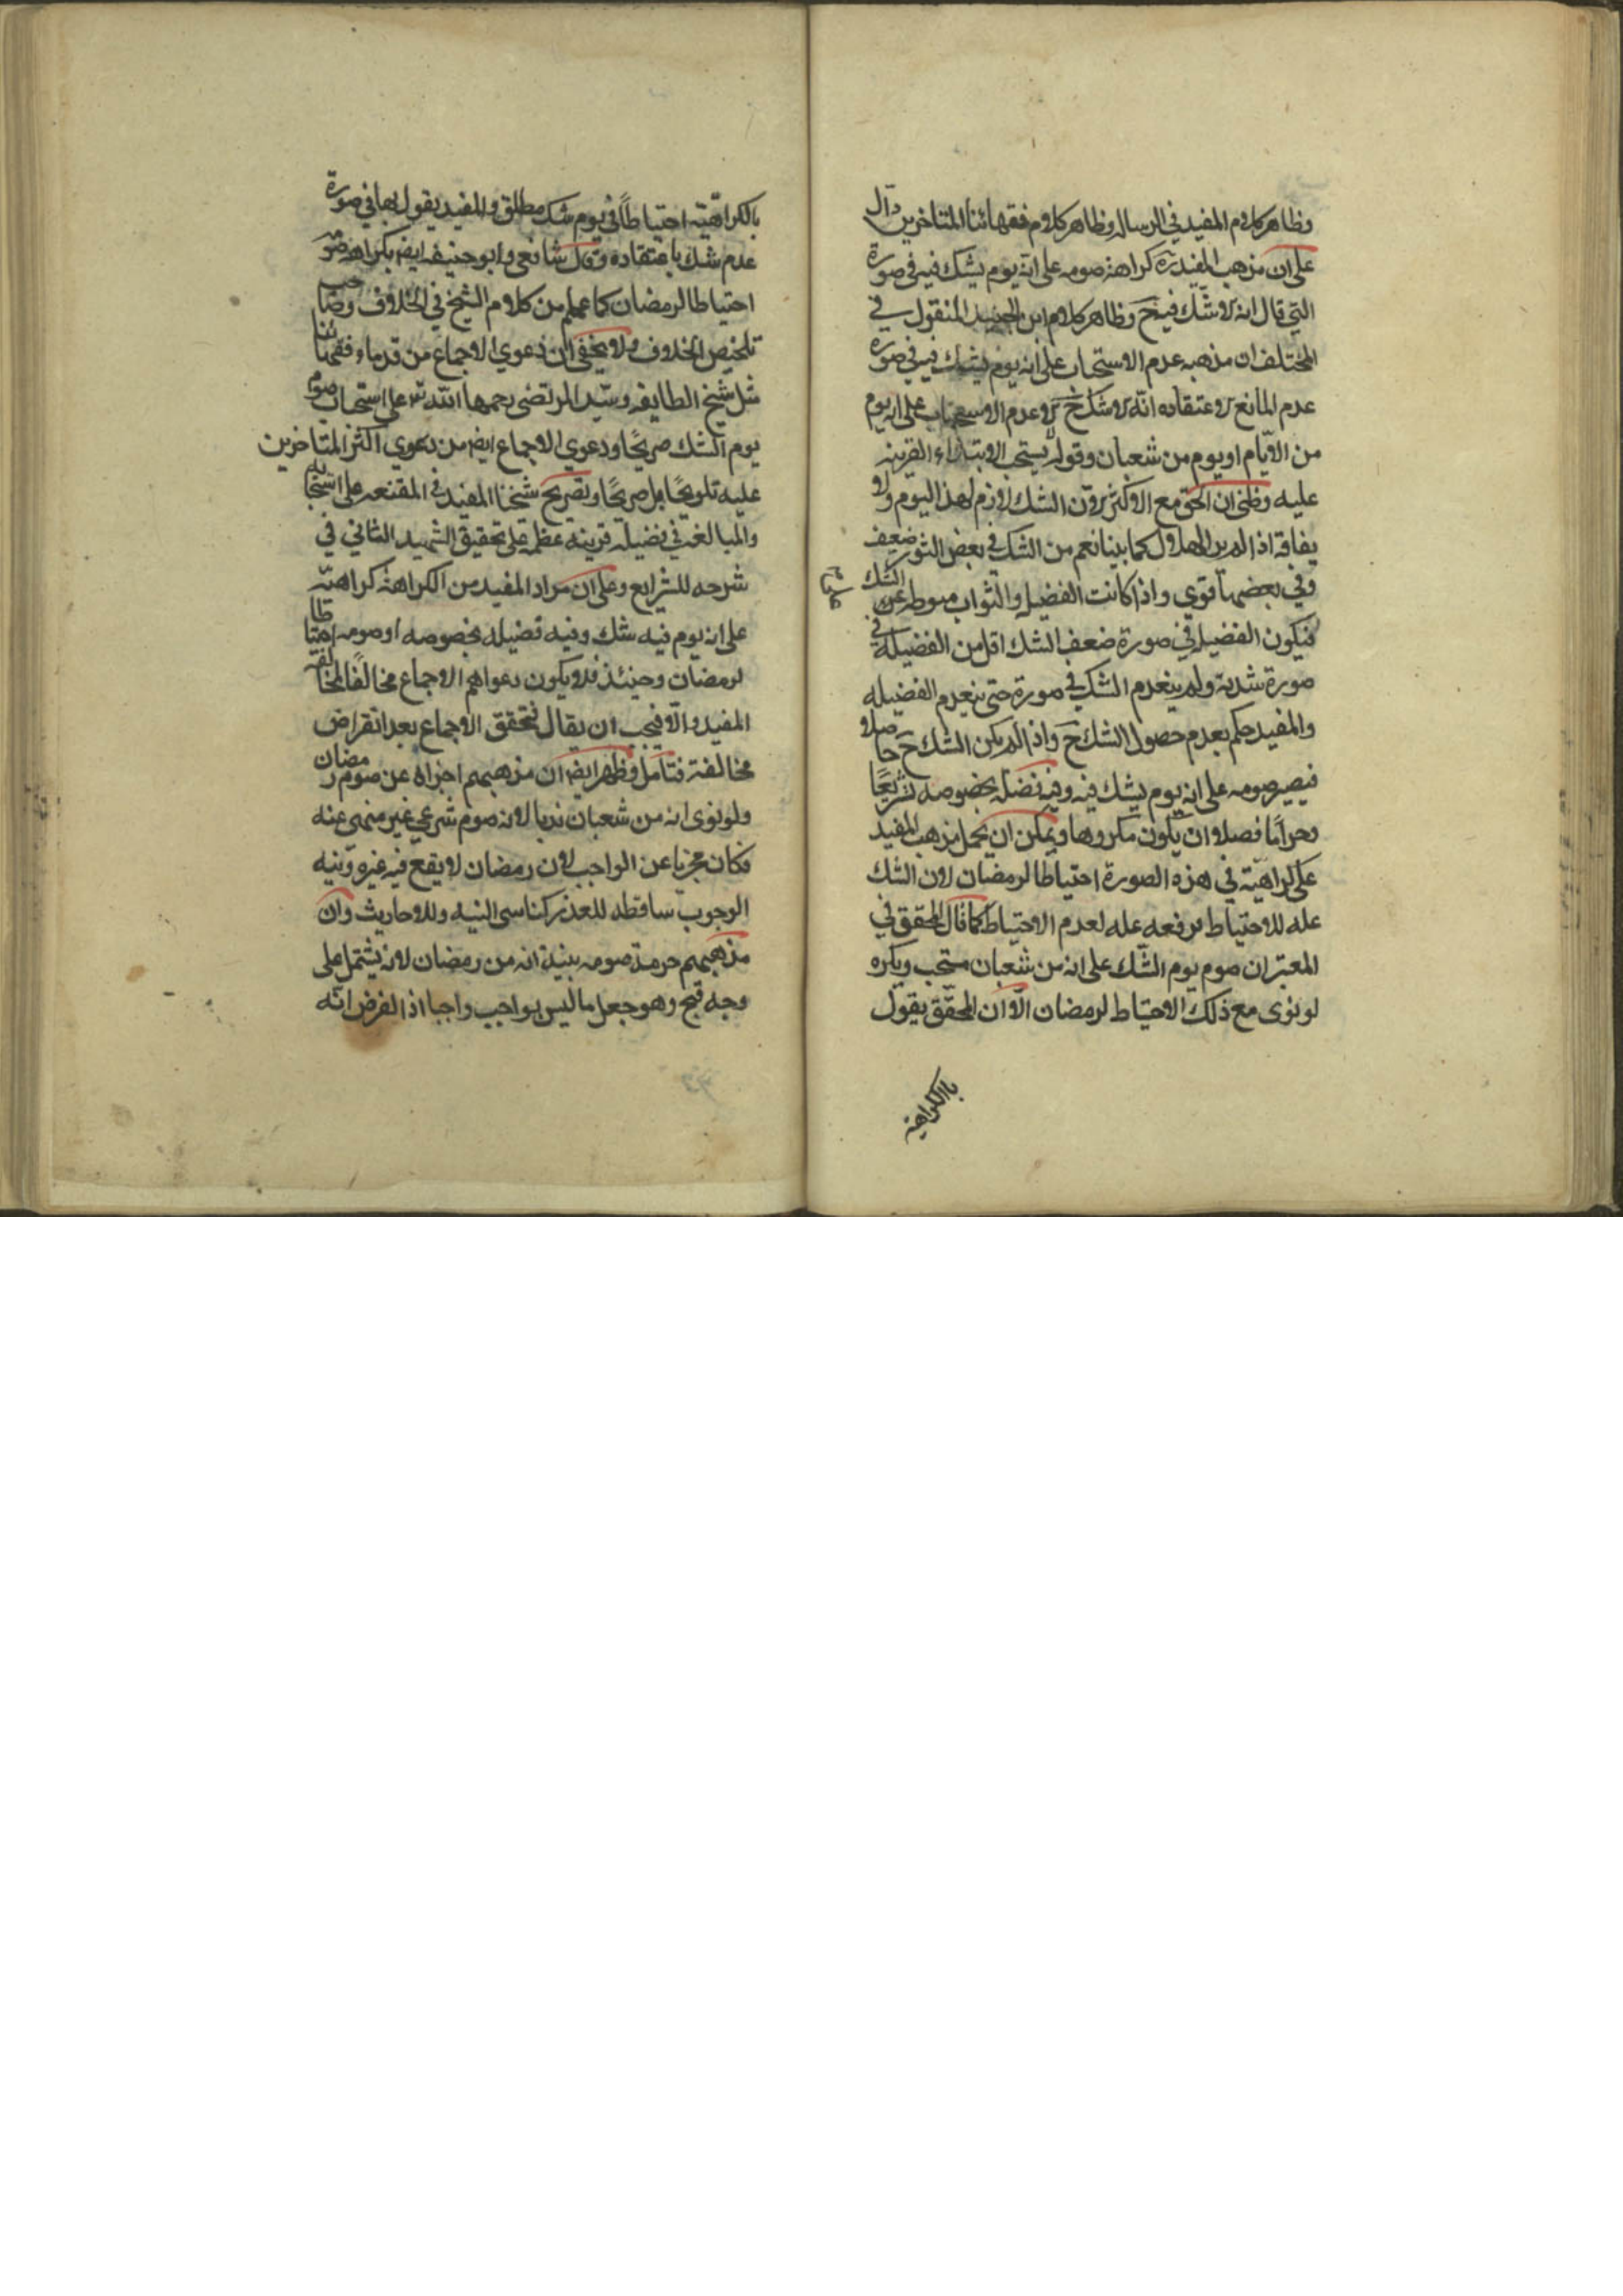 وظاهر كلام المفيد في الرساله وظاهر كلام فقهائنا المتاخرين دال
على ان مذهب المفيد ره كراهة صومه على انه يوم يشك فيه في صورة
التي قال انه لا شك فيه ح وظاهر كلام ابن الجنيد المنقول في
المختلف ان مذهبه عدم الاستحباب على انه يوم يشك فيه في صورة
عدم المانع لاعتقاده انه لا شك ح لا عدم الاستحباب على انه يوم
من الايام او يوم من شعبان وقوله لا يستحب الابتداء القرينه
عليه وظني ان الحق مع الاكثر لان الشك لازم لهذا اليوم ولا
يفارقه اذا لم ير الهلال كما بينا نعم من الشك في بعض الصور ضعيف
وفي بعضها قوي واذا كانت الفضيله والثواب منوطه عن الشك
فيكون الفضيله في صورة ضعف الشك اقل من الفضيلة في
صورة شدته ولم ينعدم الشك في صورة حتى ينعدم الفضيله
والمفيد حكم بعدم حصول الشك ح واذا لم يكن الشك ح حاصلا
فيصير صومه على انه يوم يشك فيه وفيه فضله بخصوصه تشريعًا
وحرامًا فضلا ان يكون مكروها ويمكن ان يحمل مذهب المفيد
على كراهيّة في هذه الصورة احتياطا لرمضان لان الشك
عله للاحتياط فرفعه عله لعدم الاحتياط كما قال المحقق في
المعتبر ان صوم يوم الشك على انه من شعبان مستحب ويكره
لو نوى مع ذلك الاحتياط لرمضان الّا ان المحقّق يقول
بالكراهية
بالكراهيّة احتياطًا في يوم شك مطلق والمفيد يقول بها في صورة
عدم شك باعتقاده وقال شافعي وابو حنيفه ايض بكراهة صومه
احتياطا لرمضان كما علم من كلام الشيخ في الخلاف وصاحب
تلخيص الخلاف ولا يخفى ان دعوي الاجماع من قدماء فقهائنا
مثل شيخ الطايفه وسيّد المرتضى رحمهما الله على استحباب صوم
يوم الشك صريحًا ودعوي الاجماع ايض من دعوي اكثر المتاخرين
عليه تلويحًا بل صريحًا وتصريح شيخنا المفيد في المقنعه على استحبابه
والمبالغة في فضيلة قرينة عظمه على تحقيق الشهيد الثاني في
شرحه للشرايع وعلى ان مراد المفيد من الكراهة كراهته
على انه يوم فيه شك وفيه فضيله بخصوصه او صومه احتياطا
لرمضان وحينئذ فلا يكون دعواهم الاجماع مخالفًا لمخالفة
المفيد والّا فيجب ان يقال تحقق الاجماع بعد انقراض
مخالفة فتامل وظهر ايض ان مذهبهم اجزاه عن صوم رمضان
ولو نوى انه من شعبان ندبا لانه صوم شرعي غير منهى عنه
فكان مجزيا عن الواجب لان رمضان لا يقع فيه غيره ونيه
الوجوب ساقطه للعذر كناسى النيه وللاحاديث وان
مذهبهم حرمة صومه بنية انه من رمضان لانه يشتمل على
وجه قبح وهو جعل ما ليس بواجب واجبا اذ الفرض انّه